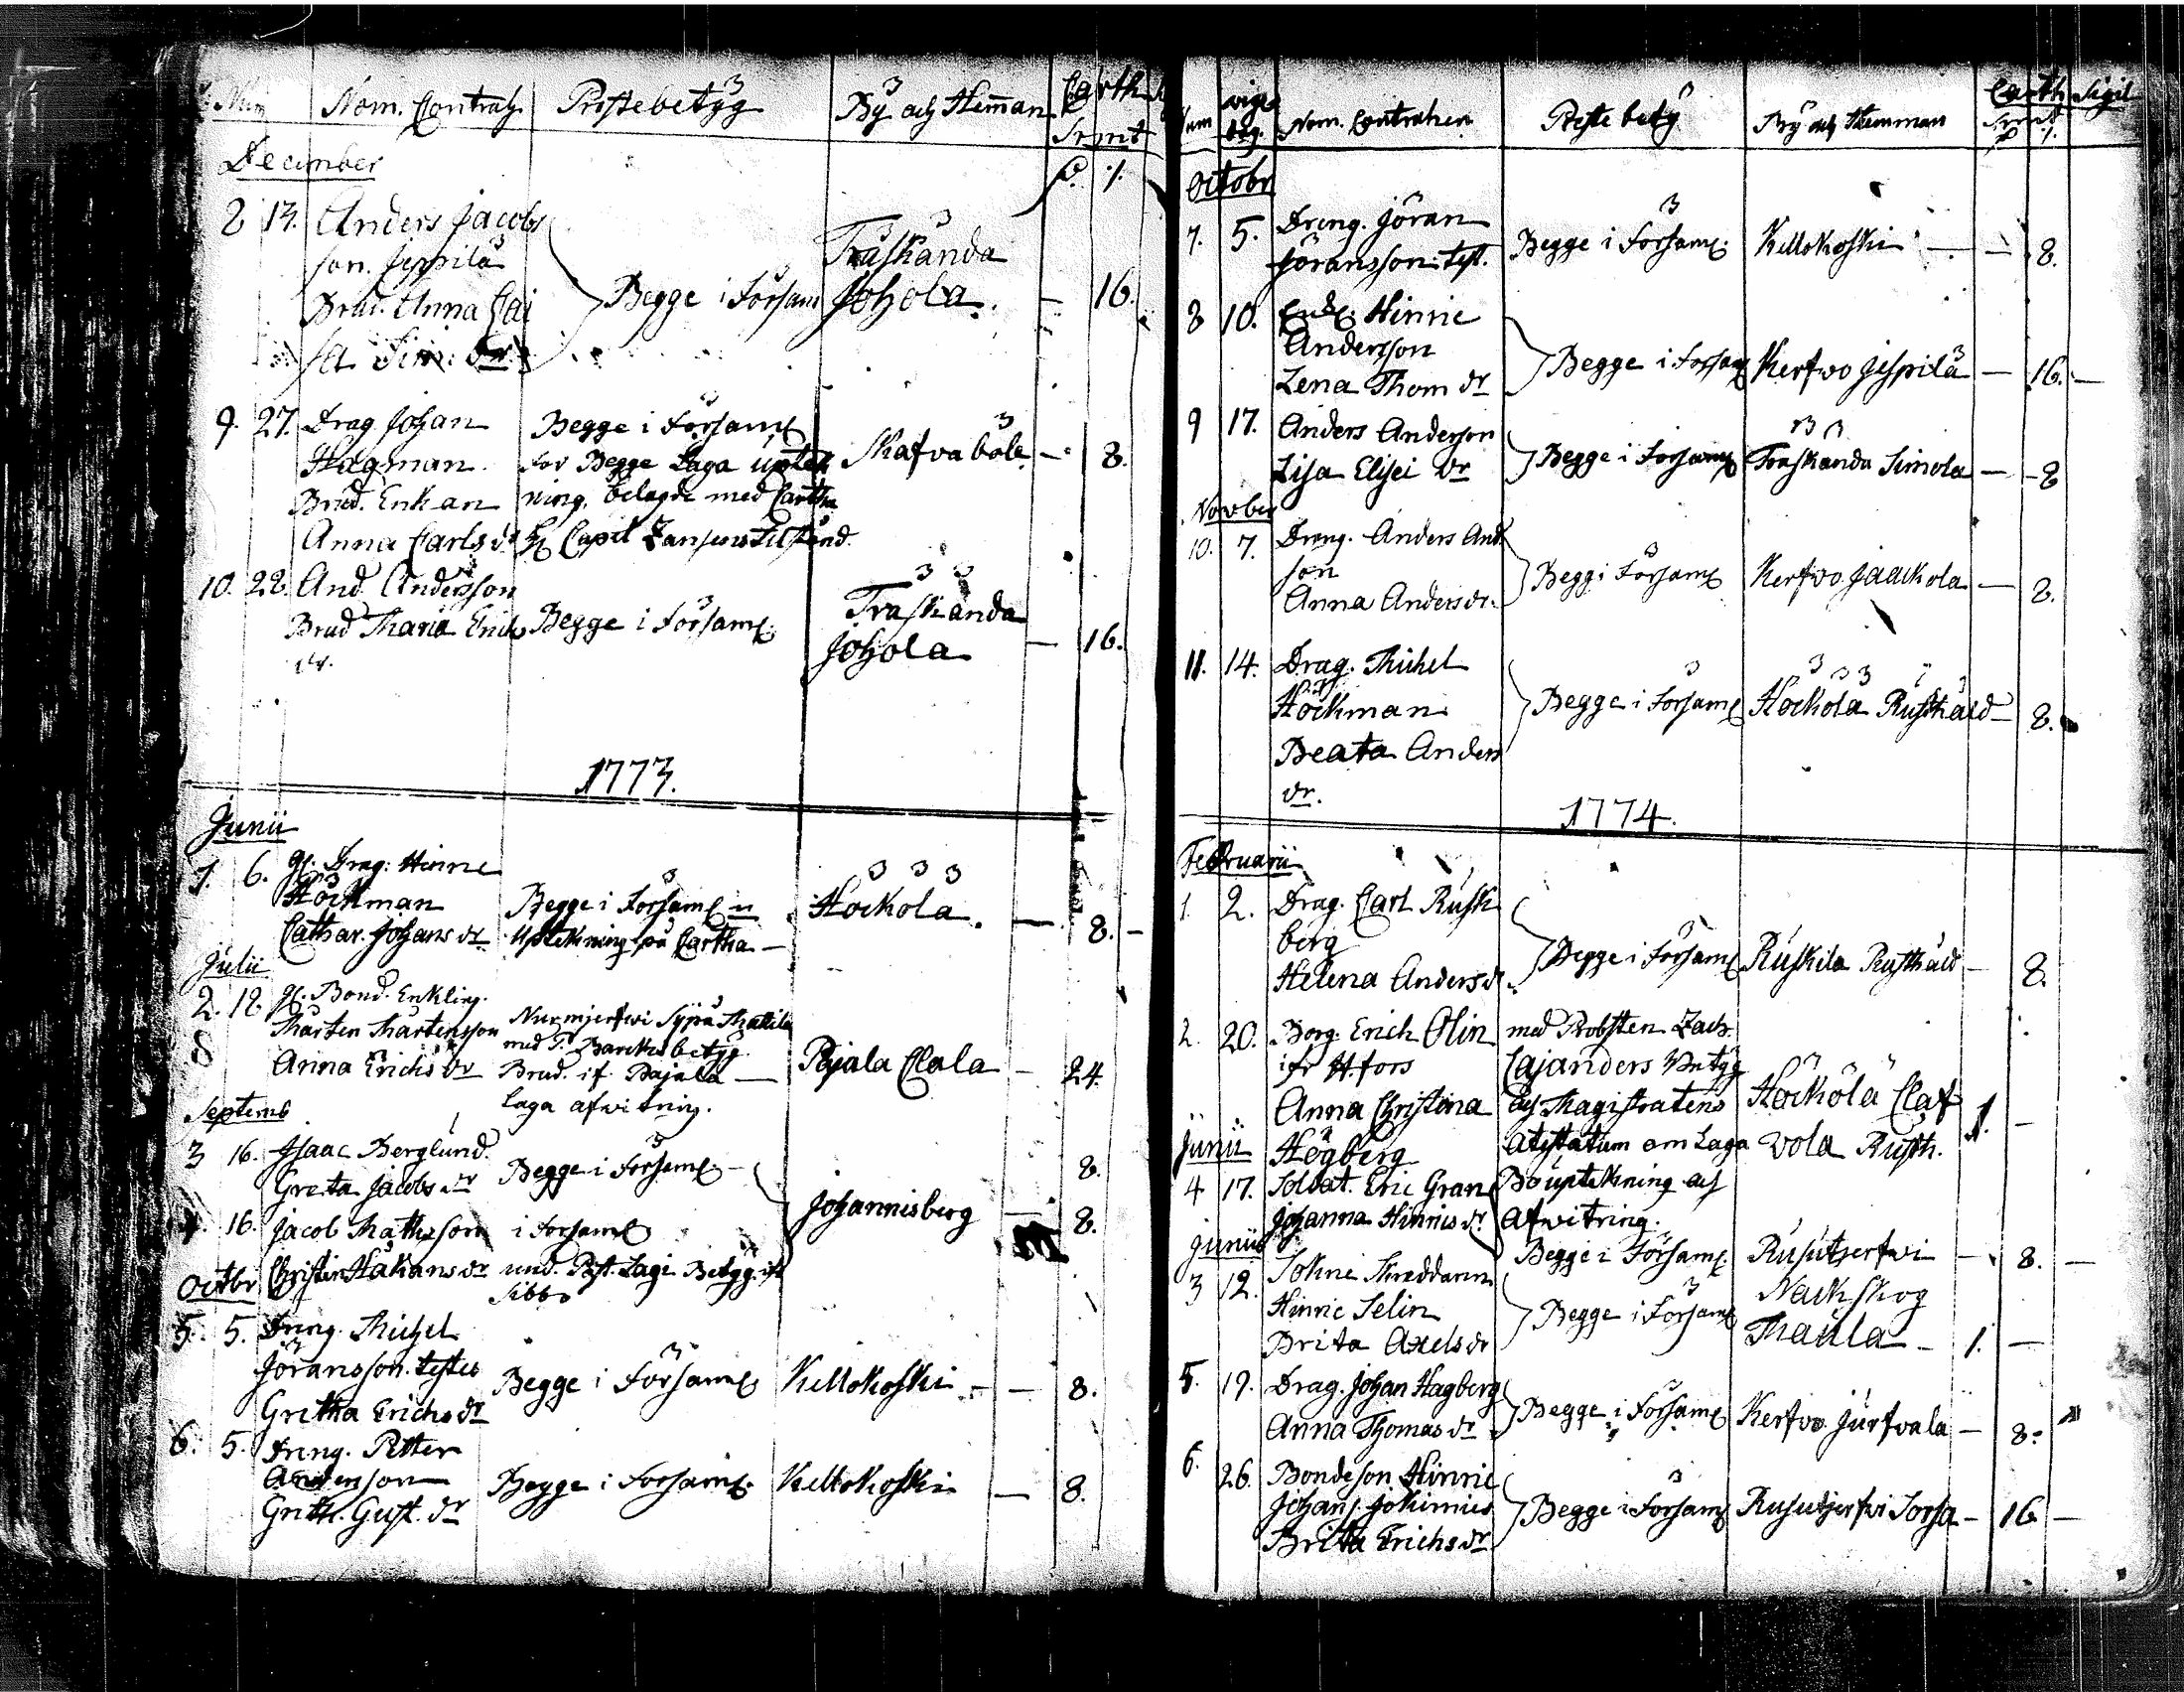 Num Nom. Contrah Prestebetyg By och Hemman Carth
Srmt
December
8 13. Anders Jacobs
son Jeppilä
Brud. Anna Cai
sa Sim. dr
Begge i Försam
Träskända
Johola. — 16.
9. 27. Drag Johan
Hagman.
Brud. Enkan
Anna Carls dr
Begge i Församl
för Begge Laga uptek
ning, belagde med Cartha
Capit
Skafvaböle — 8.
10. 22. And. Andersson
Brud Maria Erichs
dr.
Begge i Församl.
Träskända
Johola — 16.
1773.
Junii
1. 6. gl. Drag. Hinric
Höckman
Cathar. Johans dr
Begge i Församl
Uptekning på Cartha —
Höckölä. — 8. —
Julii
2. 18. gl. Bond. Enkling.
Mårten Mårtensson
Anna Erichs dr
Nurmjerfwi Sypä Mattila
med P. Barckes betyg.
Brud. if. Pajala —
laga afwitring.
Pajala Clala — 24.
Septemb
3 16. Isaac Berglund.
Greta Jacobs dr
Begge i Församl — 8.
4. 16. Jacob Mathsson
Christin Håkans dr
i Församl
und. Past. Lagi Betyg. ifr
Sibbo
Johannisberg — 8.
Octbr
5. 5. Dreng. Michel
Jöransson. testes
Gretha Erichs dr
Begge i Församl
Kellokoski — 8.
6. 5. Dreng. Petter
Andersson
Greth. Gust. dr
Begge i Församl.
Kellokoski — 8.
Num wigs dag. Nom. Contrahen Preste betyg By och Hemman Carth. Sigil
Srmt
Octobr
7. 5. Dreng. Jöran
Jöransson. test.
Begge i Församl. Kellokoski — 8.
8 10. Enkl. Hinric
Andersson
Lena Thom dr
Begge i Församl Kerfwo Jeppilä — 16. —
9 17. Anders Anderson
Lisa Elisei dr
Begge i Församl Träskända Simola — 8
Novber
10. 7. Dreng. Anders And.
son
Anna Anders dr.
Begg i Församl Kerfwo Jaackola — 8.
11. 14. Drag. Michel
Höckman
Beata Anders
dr.
Begge i Församl Höckölä Rusthåld — 8.
1774.
Februarii
1. 2. Drag. Carl Rusk
berg
Helena Anders dr
Begge i Församl Ruskila Rusthåld — 8.
2. 20. Borg. Erich Olin
ifr H.fors
Anna Christina
Högberg
med Probsten Zach.
Cajanders Betyg
och Magistratens
Atestatum om Laga
Bouptekning och
Afwitring.
Höckölä Claf
vola Rusth. 1. —
Junii
4 17. Soldat. Eric Gran
Johanna Hinrics dr
Begge i Församl. Rusutjerfwi — 8. —
Junii
3 12. Sokne Skreddaren
Hinric Selin
Brita Axels dr
Begge i Församl
Nackskog
Maula — 1. —
5. 19. Drag. Johan Hagberg
Anna Thomas dr
Begge i Församl Kerfwo Jurfvala — 8.
6. 26. Bondeson Hinric
Johans. Jokimies
Brita Erichs dr
Begge i Församl Rusutjerfwi Sorsa — 16 —